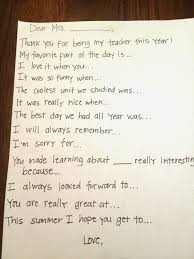 Dear Mrs. ________,
Thank you for being my teacher this year!
My favorite part of the day is...
I love it when you...
It was so funny when...
The coolest unit we studied was...
It was really nice when...
The best day we had all year was...
I will always remember...
I'm sorry for...
You made learning about ____ really interesting
because...
I always looked forward to...
You are really great at...
This summer I hope you get to...
Love,